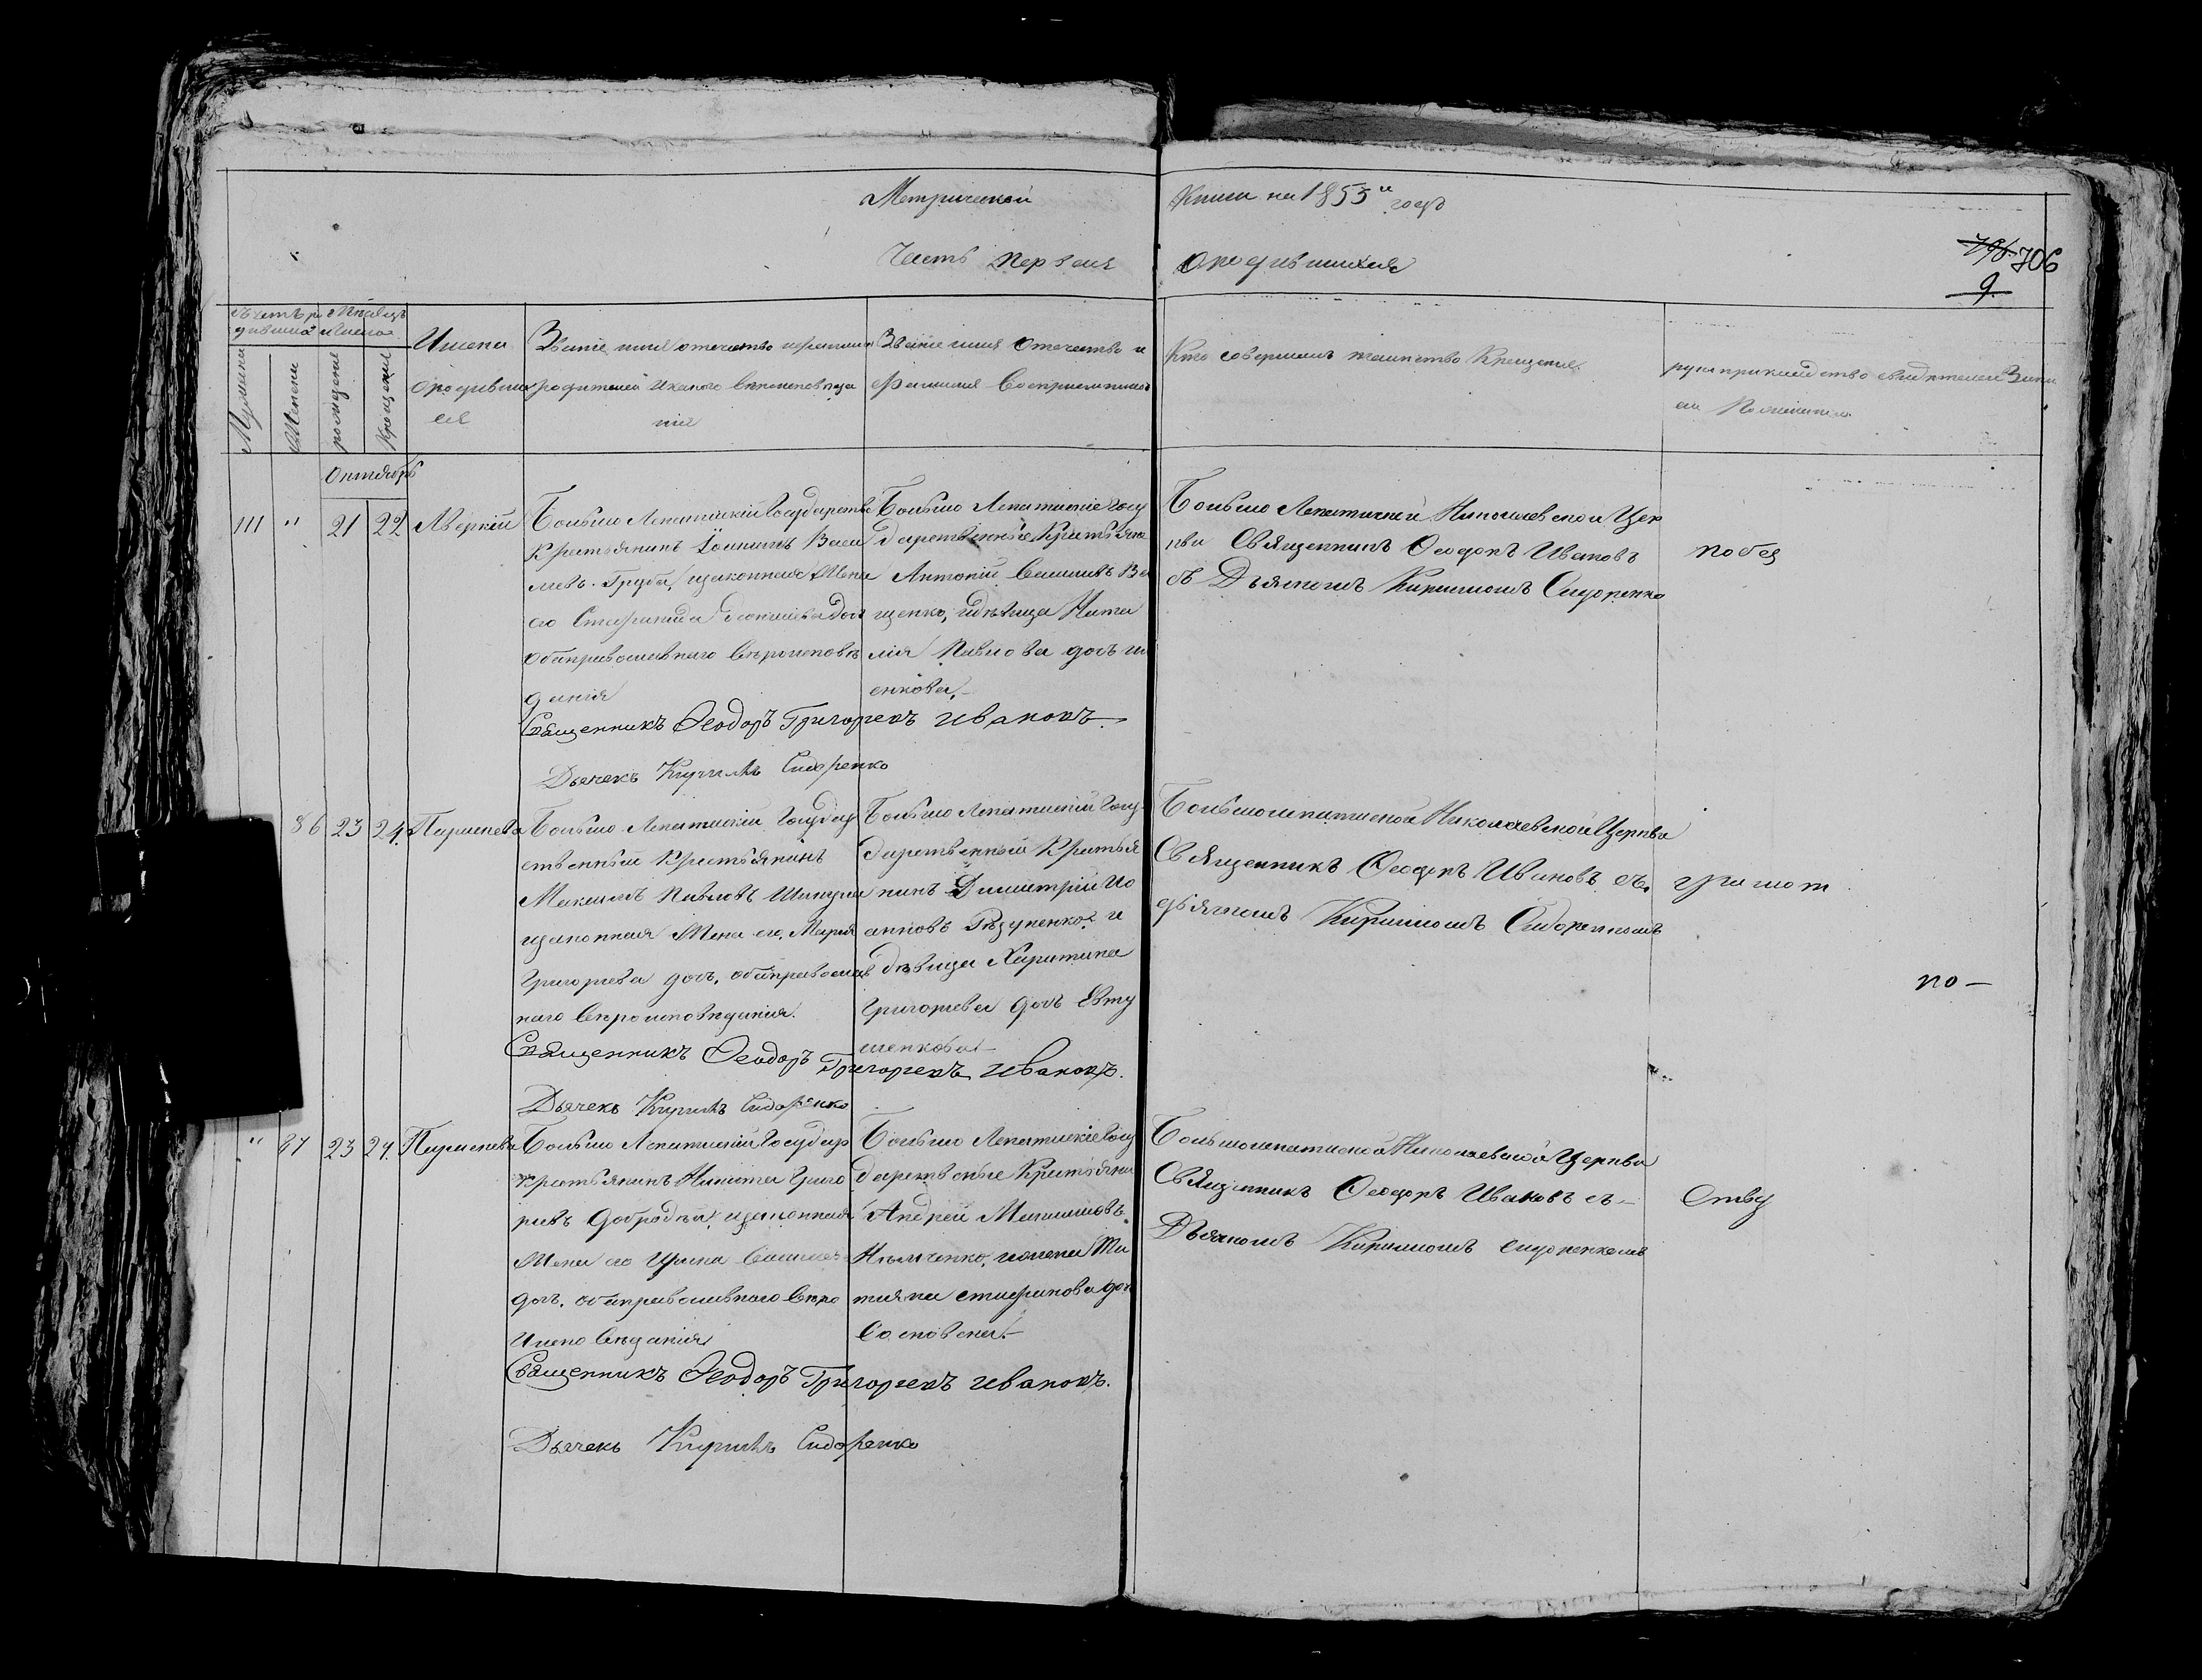 Метрической Книги на 1853й годъ
Часть первая о родившихся
706
9
Мужеска
Женска
рожденія
Крещенія
Имена
родивших
ся
Званіе имя отечество и фамилія
родителей и какого вѣроисповѣда
нія
Званіе имя отечество и
фамилія Воспріемниковъ
Кто совершалъ таинство Крещенія.
рукоприкладство свидѣтелей Запи
си
Октябрь
111 " 21 22 Аверкій
Больше Лепатихскій Государств
Крестьянинъ Іоакимъ Васи
левъ Груба, и законная Жена
его Стефанида доч
оба православнаго Вѣроисповѣ
данія
Больше Лепатихскіе Госу
дарственные Крестьяне
Антоній
щенко, и дѣвица Ната
лія Павлова дочь
енкова.
Больше Лепатихской Николаевской Цер
кви Священникъ Ѳеодоръ Ивановъ
съ Дьячкомъ Кирилломъ Сидоренко
по безъ
Священникъ Ѳеодоръ Григорьевъ Ивановъ.
Дьячекъ Кириллъ Сидоренко
86 23 24. Параскева
Больше Лепатихскій Государ
ственный Крестьянинъ
Максимъ Павловъ
и законная Жена его, Марія
Григорьева доч. оба православ
наго Вѣроисповѣданія.
Больше Лепатихскій Госу
дарственный Крестья
нинъ Димитрій Іо
анновъ и
дѣвица Харитина
Григорьева дочь Евту
шенкова
Большелепатихской Николаевской Церкви
Священникъ Ѳеодоръ Ивановъ съ
дьячкомъ Кирилломъ Сидоренкомъ
грамот
по —
Священникъ Ѳеодоръ Григорьевъ Ивановъ.
Дьячекъ Кириллъ Сидоренко
" 87 23 24. Параскева
Больше Лепатихскій Государ
крестьянинъ Никита Григо
рьевъ Добродѣй, и законная
Жена его Ирина
доч. оба православнаго Вѣро
исповѣданія
Больше Лепатихскіе Госу
дарственные Крестьяне
Андрей Максимовъ
Нѣмченко, и жена Та
тіяна Стефанова доч
Большелепатихской Николаевской Церкви
Священникъ Ѳеодоръ Ивановъ съ
Дьячкомъ Кирилломъ Сидоренкомъ
Священникъ Ѳеодоръ Григорьевъ Ивановъ.
Дьячекъ Кириллъ Сидоренко